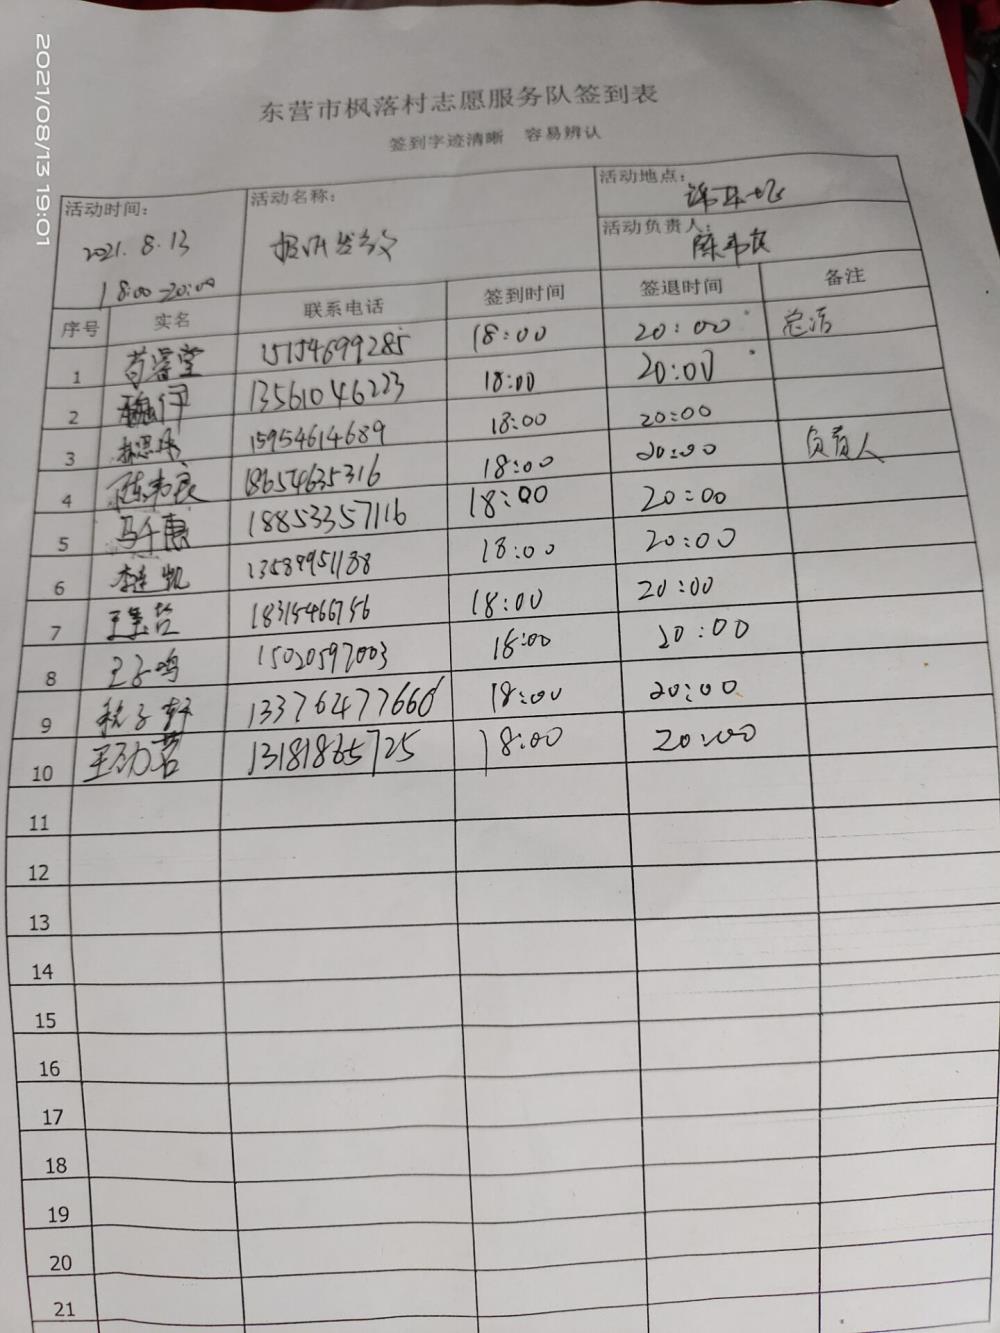 2021/08/13 19:01
东营市枫落村志愿服务队签到表
签到字迹清晰 容易辨认
活动时间: 活动名称: 活动地点:
2021. 8. 13
18:00-20:00
活动负责人: 陈韦良
序号 实名 联系电话 签到时间 签退时间 备注
1 苟睿堂 15154699285 18:00 20:00
2 13561046223 18:00 20:00
3 15954614689 18:00 20:00
4 陈韦良 18654635316 18:00 20:00 负责人
5 马千惠 18853357116 18:00 20:00
6 李连凯 18:00 20:00
7 18315466756 18:00 20:00
8 王子鸣 15020597003 18:00 20:00
9 18:00 20:00
10 13181865725 18:00 20:00
11
12
13
14
15
16
17
18
19
20
21